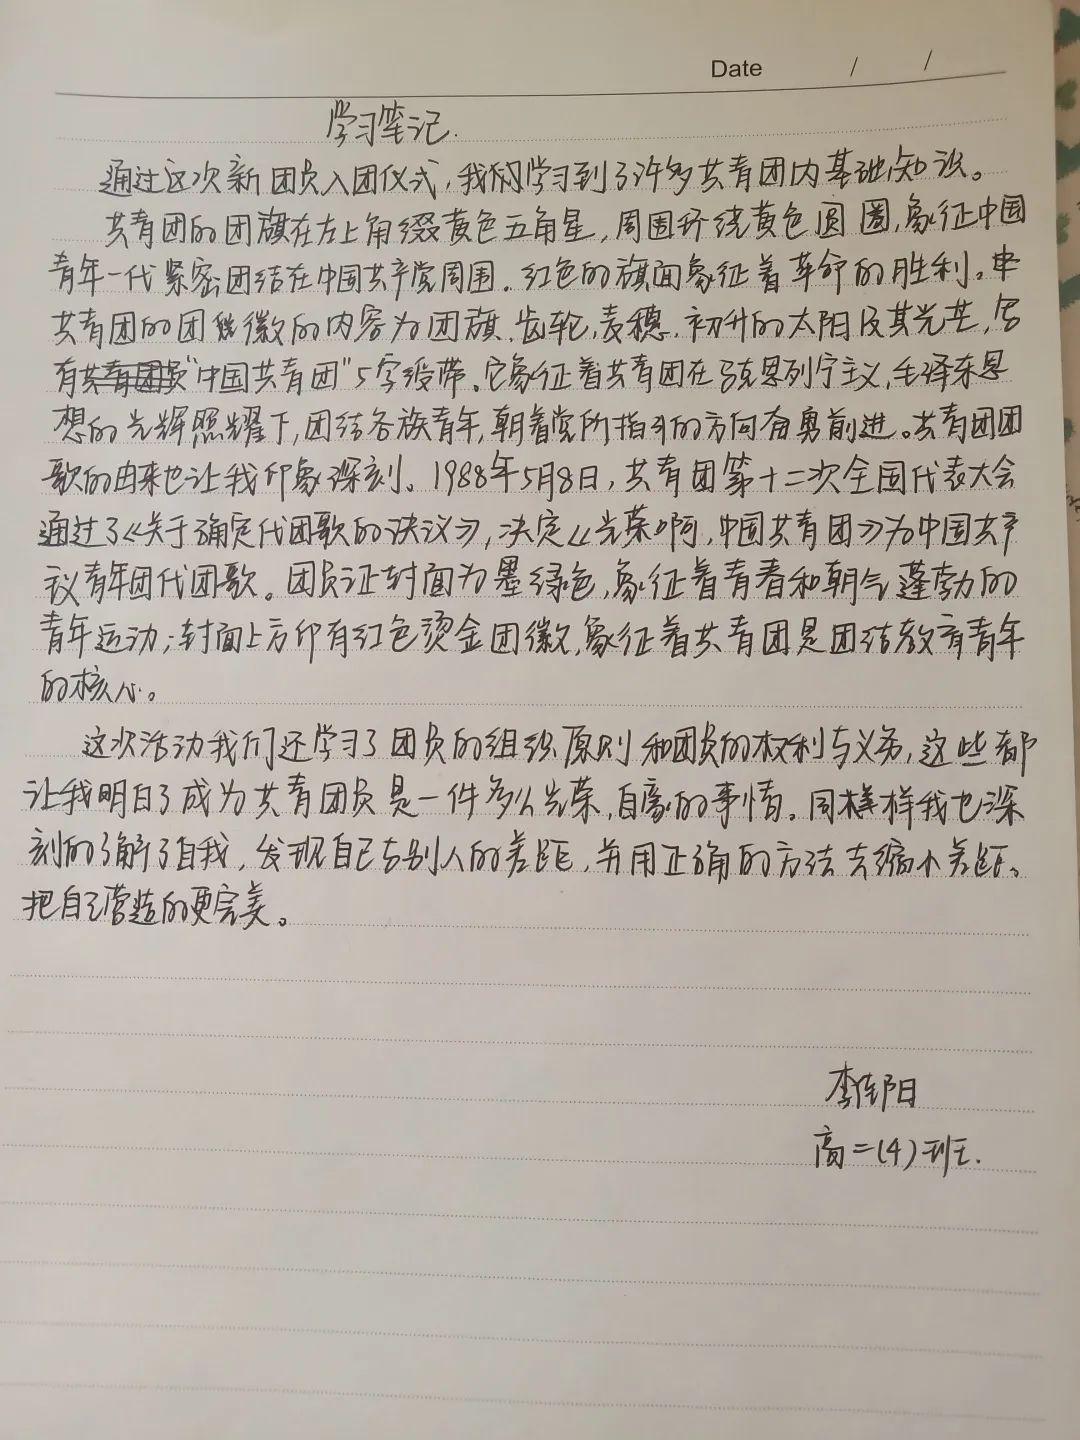 Date / /
学习笔记.
通过这次新团员入团仪式，我们学习到了许多共青团内基础知识。
共青团的团旗在左上角缀黄色五角星，周围环绕黄色圆圈，象征中国
青年一代紧密团结在中国共产党周围。红色的旗面象征着革命的胜利。
共青团的团徽的内容为团旗、齿轮、麦穗、初升的太阳及其光芒，写
有“中国共青团”5字绶带。它象征着共青团在马克思列宁主义，毛泽东思
想的光辉照耀下，团结各族青年，朝着党所指引的方向奋勇前进。共青团团
歌的由来也让我印象深刻。1988年5月8日，共青团第十二次全国代表大会
通过了《关于确定代团歌的决议》，决定《光荣啊，中国共青团》为中国共产
议青年团代团歌。团员证封面为墨绿色，象征着青春和朝气蓬勃的
青年运动；封面上方印有红色烫金团徽，象征着共青团是团结教育青年
的核心。
这次活动我们还学习了团员的组织原则和团员的权利与义务，这些都
让我明白了成为共青团员是一件多么光荣，自豪的事情。同样样我也深
刻的了解了自我，发现自己与别人的差距，并用正确的方法去缩小差距。
把自己营造的更完美。
李佳阳
高二(4)班.